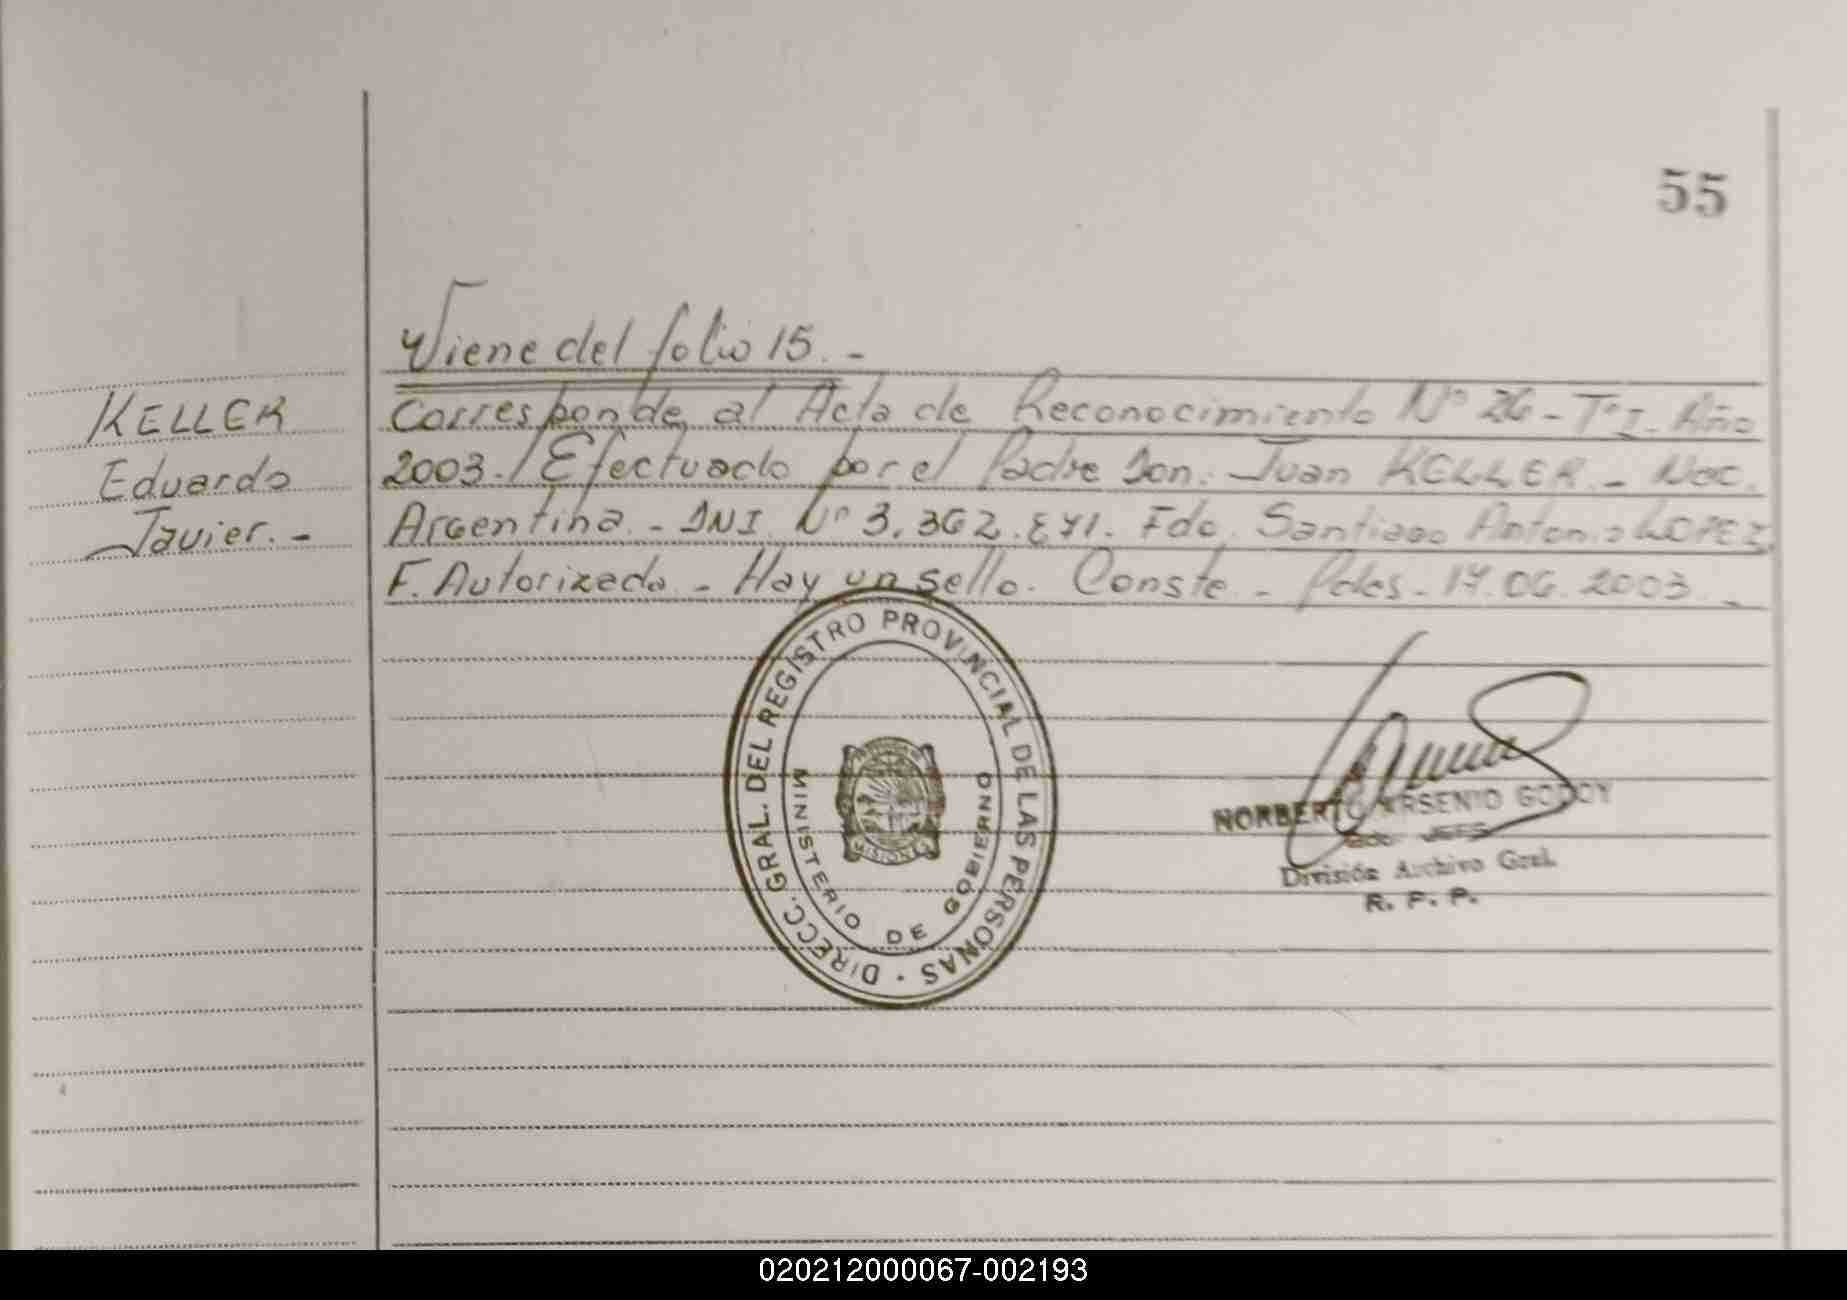 55
Viene del folio 15. -
KELLER
Eduardo
Javier. -
Corresponde al Acta de Reconocimiento Nº 26 - Tº I. Año
2003. / Efectuado por el Padre Don. Juan KELLER. - Nac.
Argentina. - DNI. Nº Fdo. Santiago Antonio LOPEZ
F. Autorizado. - Hay un sello. Conste. - Pdas. 17.06.2003. -
DIRECC. GRAL. DEL REGISTRO PROVINCIAL DE LAS PERSONAS
MINISTERIO DE GOBIERNO
MISIONES
NORBERTO ARSENIO GODOY
JEFE
División Archivo Gral.
R. P. P.
020212000067-002193